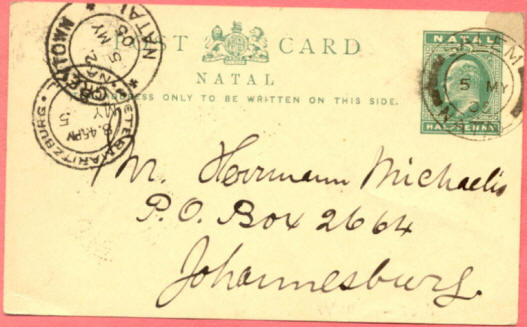 POST CARD
NATAL
ADDRESS ONLY TO BE WRITTEN ON THIS SIDE.
NATAL
HALFPENNY
GREYTOWN
NATAL
5 MY
05
PIETERMARITZBURG
8.45PM
MY 5
5 MY
Mr. Herrmann Michaelis
P.O. Box 2664
Johannesburg.